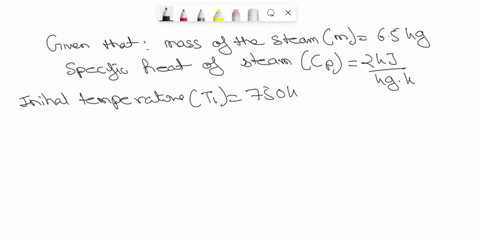 Given that: mass of the steam (m) = 6.5 kg
Specific heat of steam (Cp) = 2kJ/kg.k
Initial temperature (T1) = 750k